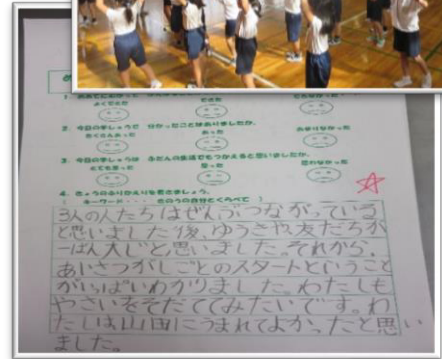 よくできた
できた
2 今日の学しゅうで分かったことはありましたか。
たくさんあった
あった
あまりなかった
3 今日の学しゅうは ふだんの生活でもつかえると思いましたか。
とても思った
思った
思わなかった
4 きょうのふりかえりを書きましょう。
( キーワード・・・ きのうの自分とくらべて )
3人の人たちはぜんぶつながっている
と思いました後、ゆうきや友だちが
一ばん大じと思いました。それから、
あいさつがしごとのスタートということ
がいっぱいわかりました。わたしも
やさいをそだててみたいです。わ
たしは山田にうまれてよかったと思い
ました。